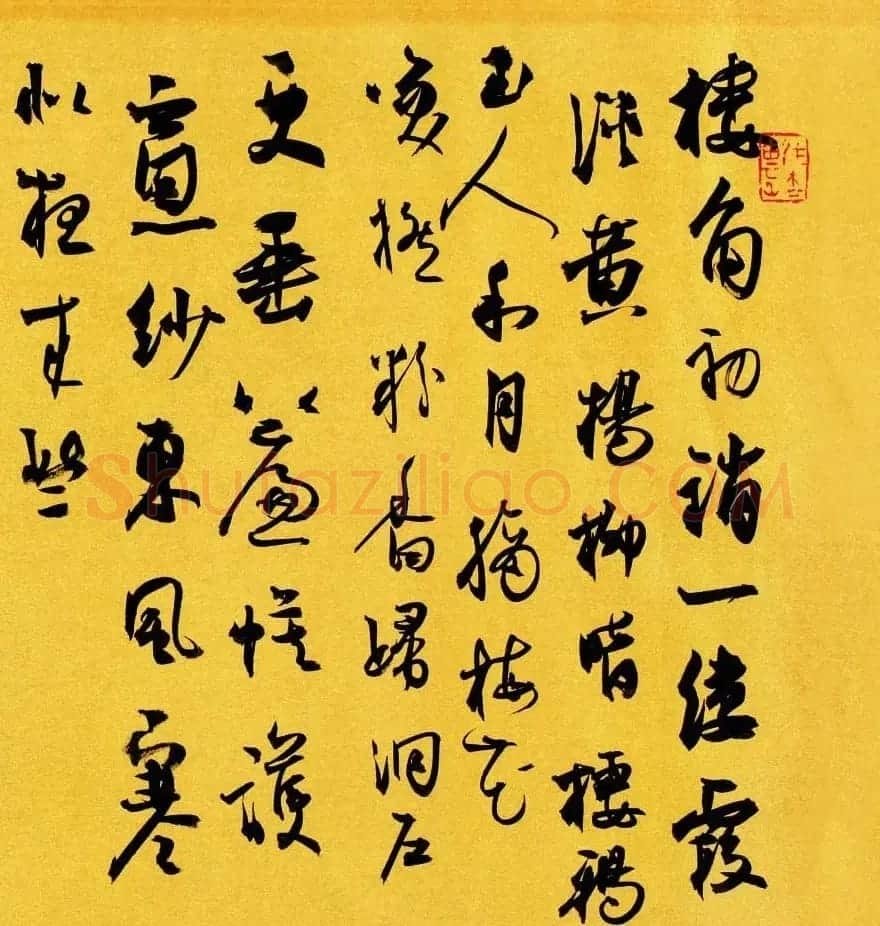 樓角初銷一縷霞
淡黄楊柳暗棲鴉
玉人和月摘梅花
咲撚粉香歸洞户
更垂簾幙護
窗紗東風寒
似来些
Shufaziliao.COM